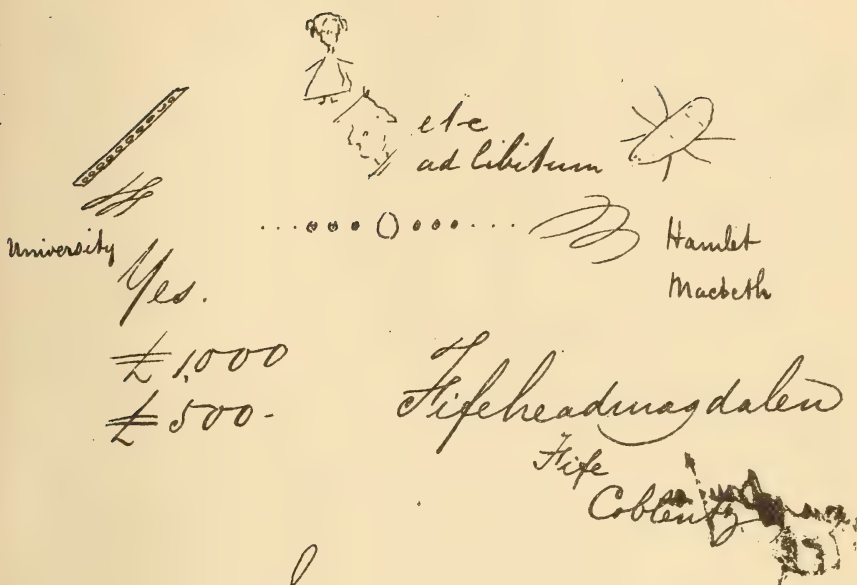 etc
ad libitum
University
Hamlet
Macbeth
Yes.
£1,000
£500-
Fifeheadmagdalen
Fife
Coblentz